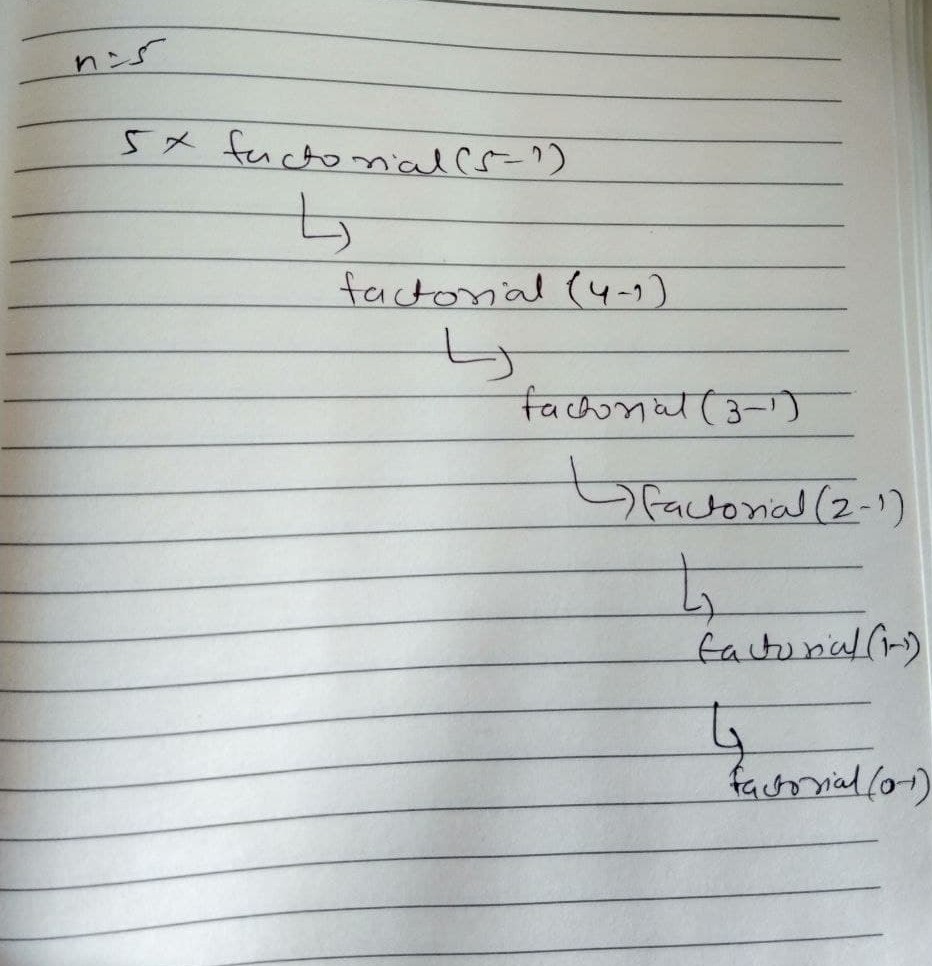 n=5
5 × factorial(5-1)
factorial (4-1)
factorial (3-1)
factorial (2-1)
factorial (1-1)
factorial (0-1)